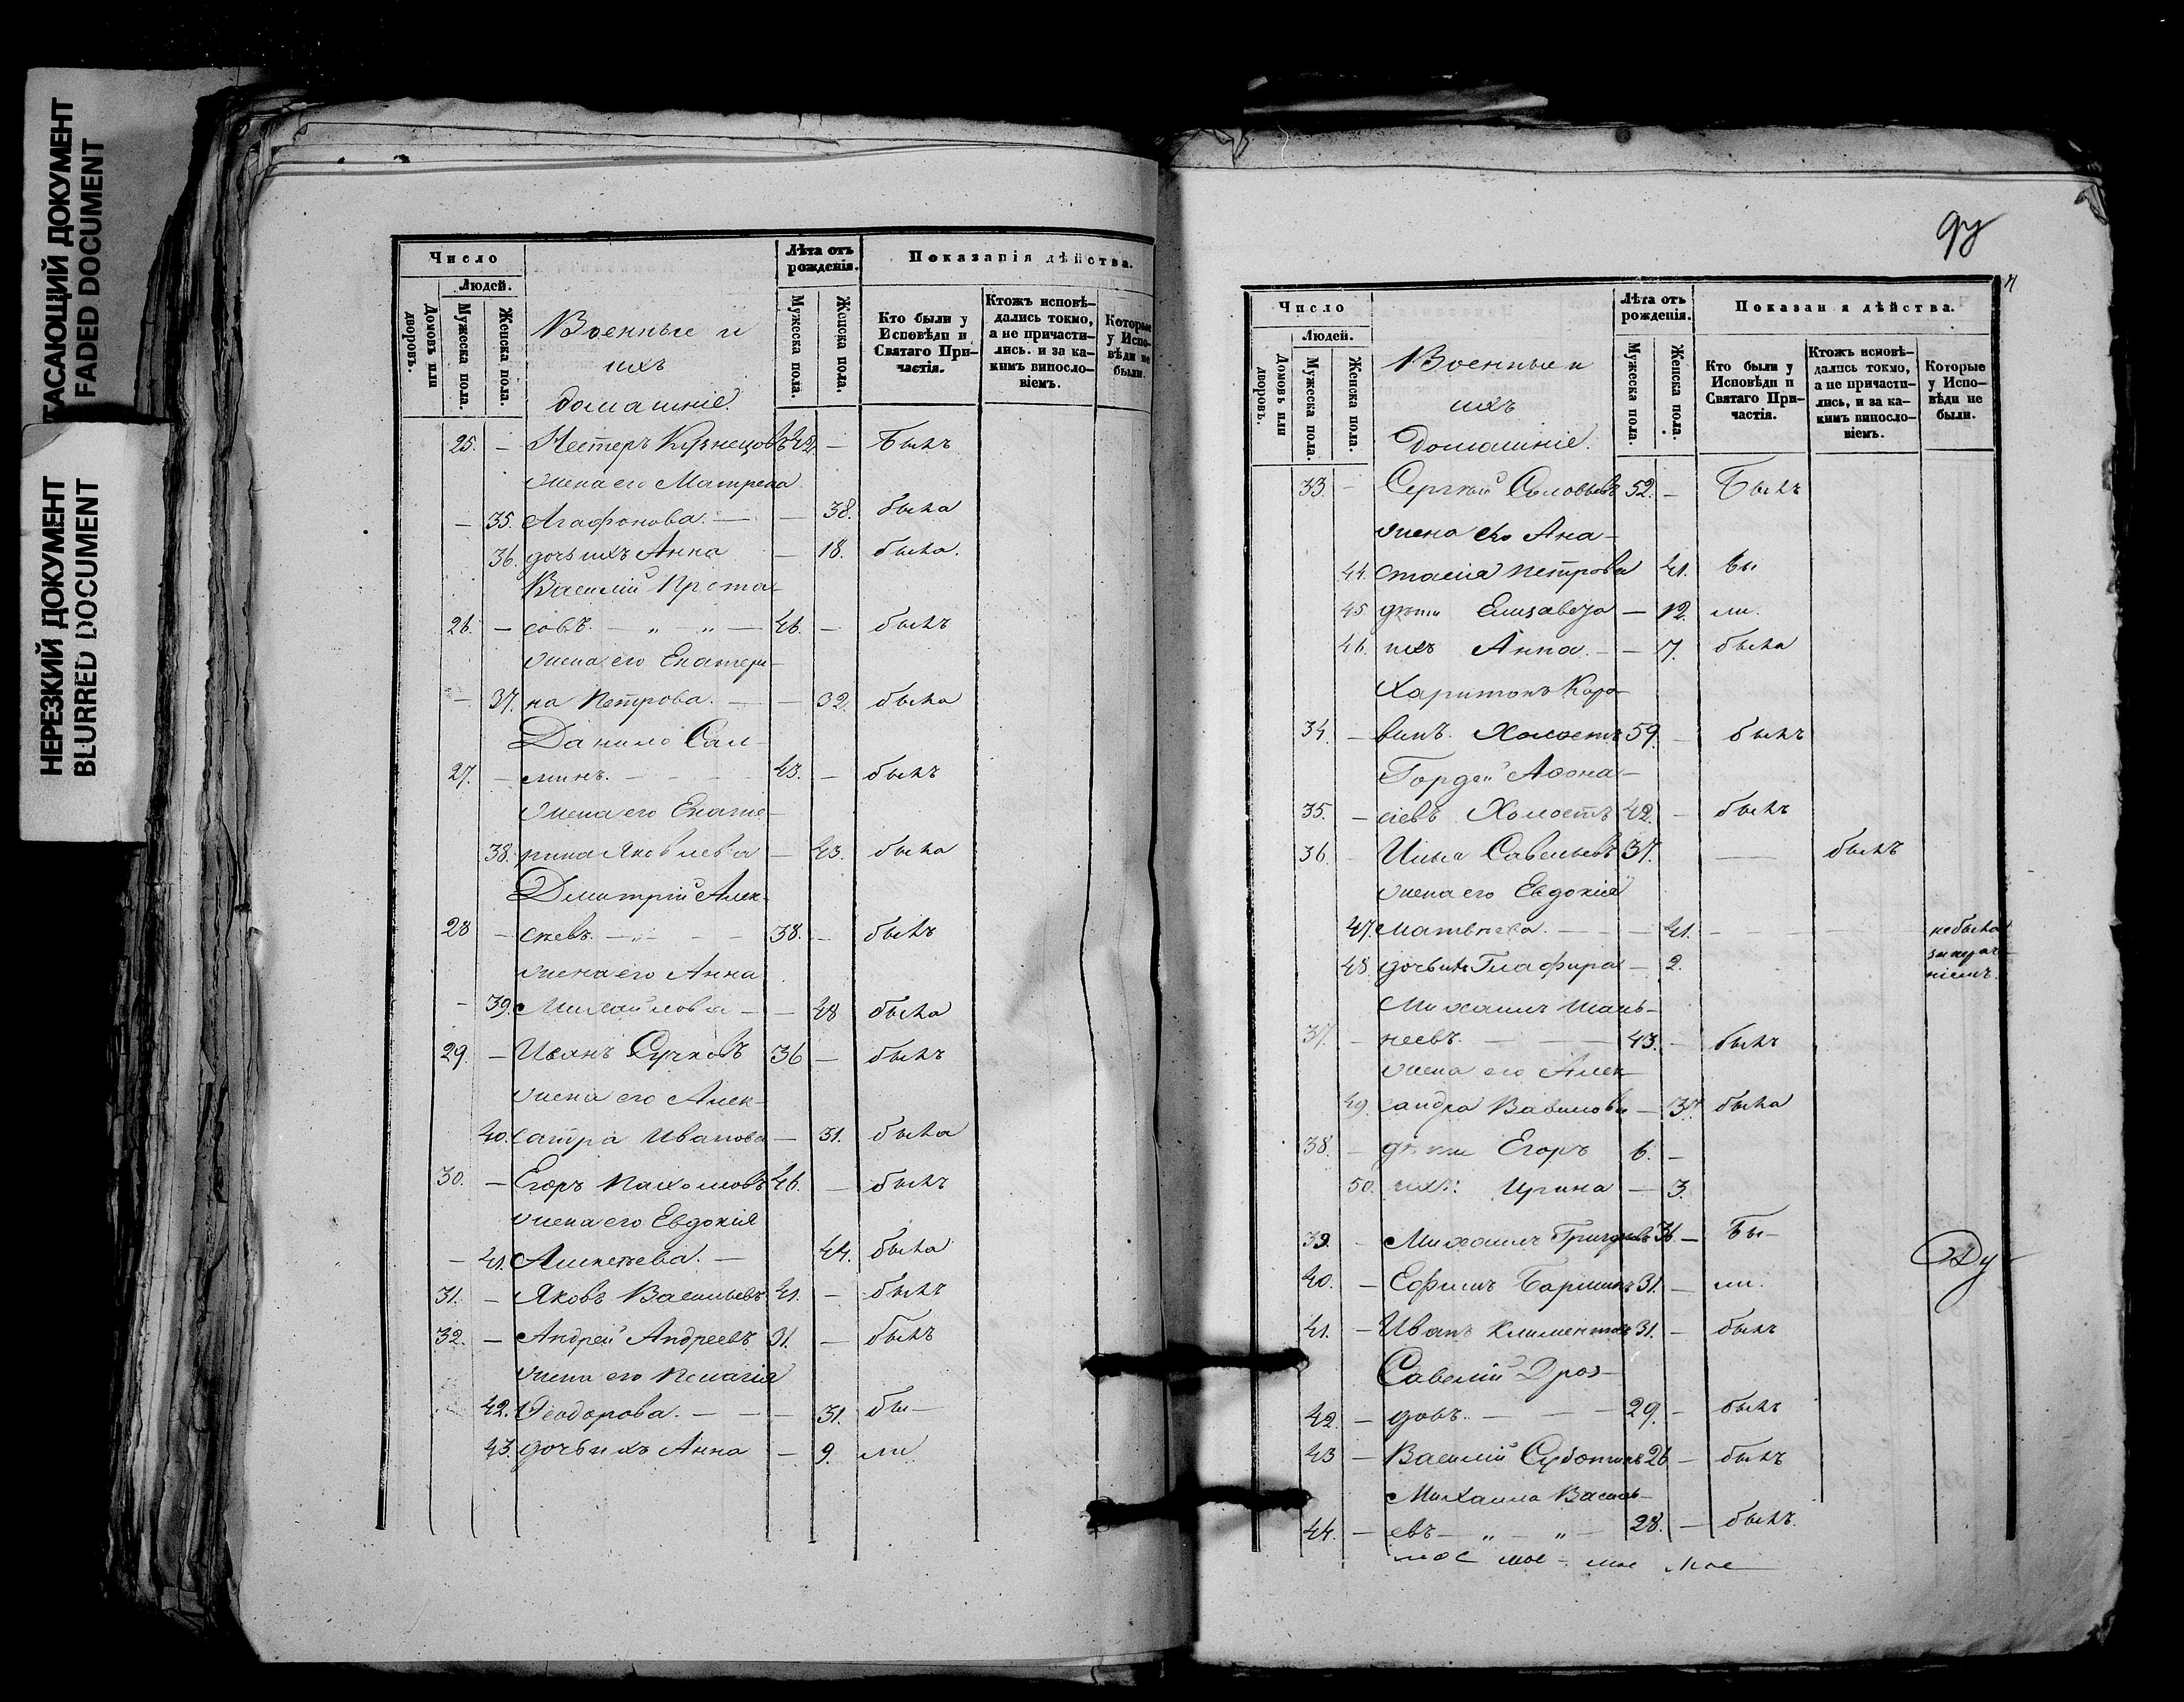 УГАСАЮЩИЙ ДОКУМЕНТ
FADED DOCUMENT
НЕРЕЗКИЙ ДОКУМЕНТ
BLURRED DOCUMENT
Число
Лѣта отъ рожденія.
Показанія дѣйства.
Людей.
Домовъ или дворовъ.
Мужеска пола.
Женска пола.
Военные и
ихъ
домашніе.
Мужеска пола.
Женска пола.
Кто были у Исповѣди и Святаго Причастія.
Ктожъ исповѣдались токмо, а не причастились. и за какимъ винословіемъ.
Которые у Исповѣди не были.
25. — Нестеръ Кузнецовъ 42 — Былъ
жена его Матрена
— 35. Агафонова. — — 38. была
36. дочь ихъ Анна — 18. была.
Василій Прота-
26. — совъ. — „ — „ — 46. — былъ
жена его Екатери-
— 37. на Петрова. — — 32. была
Данило Сал-
27. — минъ. — 43. — былъ
жена его Екате-
38. рина Яковлева — 43. была
Дмитрій Алек-
28 — сѣевъ. — „ — 38. — былъ
жена его Анна
— 39. Михайлова — — 48 была
29. — Иванъ Сучковъ 36 — былъ
жена его Алек-
40. сандра Иванова — 31. была
30. — Егоръ Пахомовъ 46. — былъ
жена его Евдокія
— 41. Алексѣева. — 44. была
31. — Яковъ Васильевъ 41. — былъ
32. — Андрей Андреевъ 31. — былъ
жена его Пелагія
42. Ѳеодорова. — — — 31. бы—
43. дочь ихъ Анна — 9. ли
Число
Лѣта отъ рожденія.
Показан я дѣйства.
Людей.
Домовъ или дворовъ.
Мужеска пола.
Женска пола.
Военные и
ихъ
Домашніе.
Мужеска пола.
Женска пола.
Кто были у Исповѣди и Святаго Причастія.
Ктожъ исповѣдались токмо, а не причастились, и за какимъ винословіемъ.
Которые у Исповѣди не были.
33. — Сергѣй Соловьевъ 52. — Былъ
жена его Ана-
44. стасія Петрова 41. бы
45 дѣти Елизавета — 12. ли.
46. ихъ Анна. — — 7. была
Харитонъ Коро-
34. — винъ. Холостъ 59. — былъ
Гордей Аѳона-
35. — сіевъ Холостъ 42. — былъ
36. — Илья Савельевъ 37. — былъ
жена его Евдокія
47. Матвѣева. — — — 41. — — — не была
48. дочь ихъ Глафира — 2.
Михаилъ
37. — неевъ. — — 43. — былъ
жена его Алек-
49. сандра Вавилова — 37. была
38. — дѣти Егоръ 6. —
50. ихъ: Ирина — 3.
39. — Михаилъ Григорьевъ 36 — Бы—
40. — Ефимъ 31. — ли.
41. — Иванъ Климентовъ 31. — былъ
Савелій Дроз-
42 — довъ. — — 29. — былъ
43 — Василій Суботинъ 26 — былъ
Михаила Василь-
44. — евъ — „ — „ — 28. — былъ.